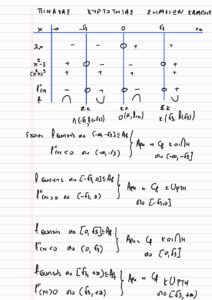 ΠΙΝΑΚΑΣ ΚΥΡΤΟΤΗΤΑΣ ΣΗΜΕΙΩΝ ΚΑΜΠΗΣ
x -∞ -√3 0 √3 +∞
2x - - 0 + +
x²-3 + 0 - - 0 +
(x²+1)³ + + + +
f''(x) - 0 + 0 - 0 +
f ∩ ∪ ∩ ∪
Σ.Κ Σ.Κ Σ.Κ
Λ(-√3, f(-√3)) O(0, f(0)) K(√3, f(√3))
f συνεχής στο (-∞, -√3] ⊆ Af
f''(x) < 0 στο (-∞, -√3)
Άρα η Cf κοίλη
στο (-∞, -√3]
f συνεχής στο [-√3, 0] ⊆ Af
f''(x) > 0 στο (-√3, 0)
Άρα η Cf κυρτή
στο [-√3, 0]
f συνεχής στο [0, √3] ⊆ Af
f''(x) < 0 στο (0, √3)
Άρα η Cf κοίλη
στο [0, √3]
f συνεχής στο [√3, +∞) ⊆ Af
f''(x) > 0 στο (√3, +∞)
Άρα η Cf κυρτή
στο [√3, +∞)